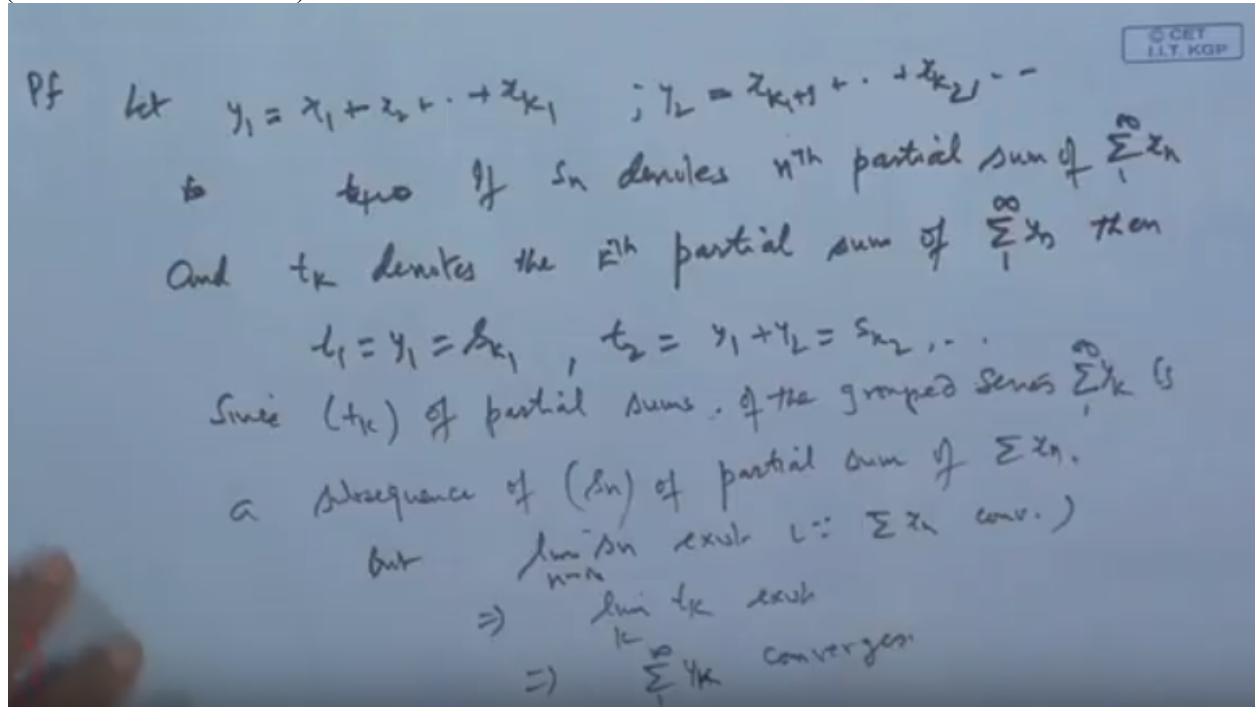 © CET
I.I.T. KGP
Pf Let y₁ = x₁ + x₂ + · · + x_{k₁} ; y₂ = x_{k₁+1} + · · + x_{k₂}, - -
If Sn denotes nth partial sum of ∑₁^∞ xn
And tk denotes the kth partial sum of ∑₁^∞ yn then
t₁ = y₁ = S_{k₁} , t₂ = y₁ + y₂ = S_{k₂} , . .
Since (tk) of partial sums . of the grouped series ∑₁^∞ yk is
a subsequence of (Sn) of partial sum of ∑ xn.
but lim_{n→∞} Sn exist (∵ ∑ xn conv.)
⇒ lim_k tk exist
⇒ ∑₁^∞ yk converges.